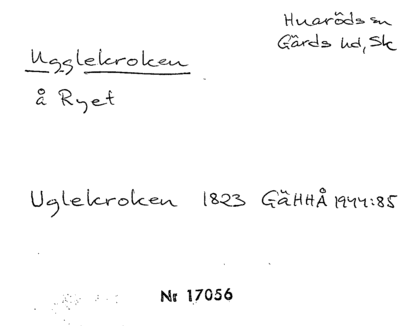 Huaröds sn
Gärds hd, Sk
Ugglekroken
å Ryet
Uglekroken 1823 GäHHÅ 1944:85
Nr 17056